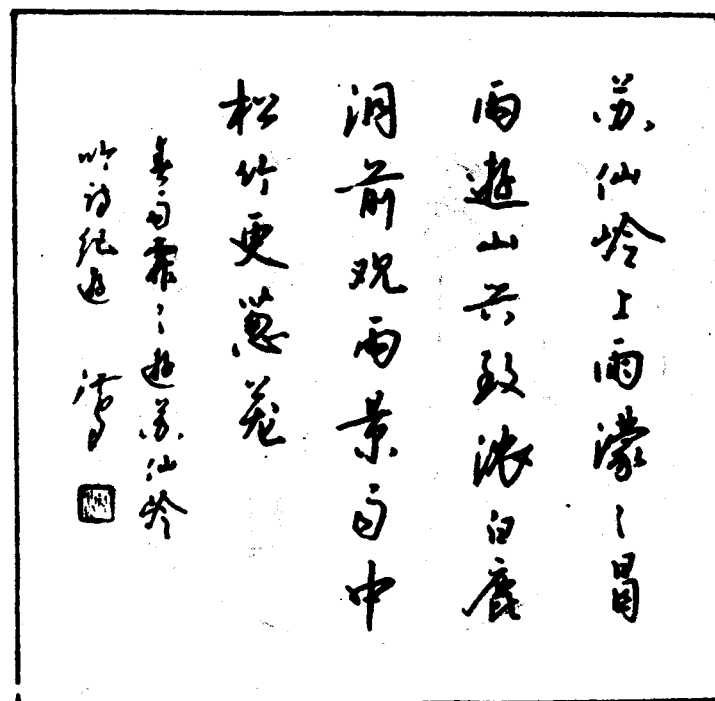 苏仙岭上雨濛々冒
雨遊山兴致浓白鹿
洞前观雨景雨中
松竹更葱茏
春雨霏々遊苏仙岭
吟诗纪遊